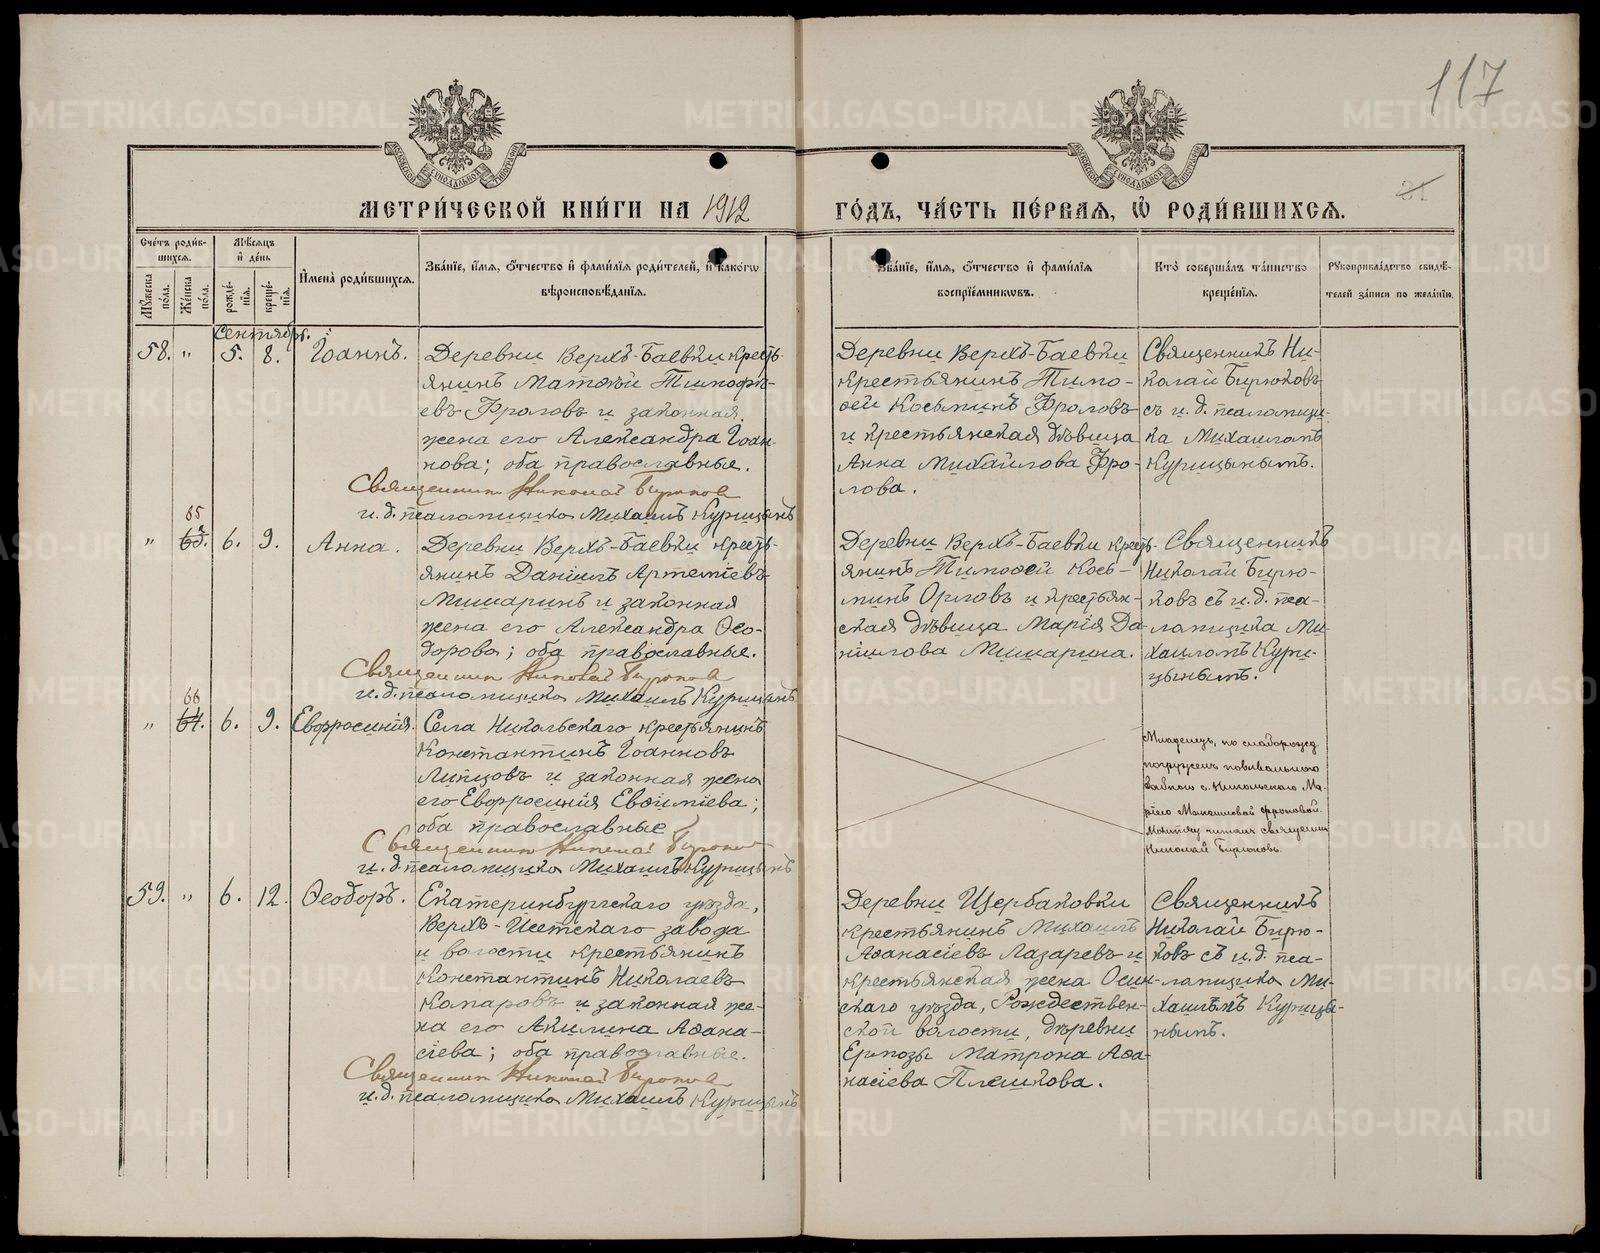 117
МЕТРИ́ЧЕСКОЙ КНИ́ГИ НА 1912 ГО́ДЪ, ЧА́СТЬ ПЕ́РВАЯ, Ѽ РОДИ́ВШИХСЯ.
Счетъ роди́вшихся.
Мꙋ́жеска по́ла.
Же́нска по́ла.
Мѣ́сяцъ и҆ де́нь
рожде́нїя.
креще́нїя.
И҆мена̀ роди́вшихся.
Зва́нїе, и҆́мя, ѻ҆́тчество и҆ фами́лїя роди́телей, и҆ како́гѡ
вѣроисповѣ́данїя.
Зва́нїе, и҆́мя, ѻ҆́тчество и҆ фами́лїя
воспрїе́мникѡвъ.
Кто̀ соверша́лъ та́инство
креще́нїя.
Рꙋкоприкла́дство свидѣ́-
телей за́писи по жела́нїю.
Сентябрь.
58. „ 5. 8. Іоаннъ.
Деревни Верхъ-Баевки кресть-
янинъ Матѳій Тимофѣ-
евъ Фроловъ и законная
жена его Александра Іоан-
нова; оба православные.
Священникъ Николай Бирюковъ
и. д. псаломщика Михаилъ Курицынъ
Деревни Верхъ-Баевки
крестьянинъ Тимо-
ѳей Косьминъ Фроловъ
и крестьянская дѣвица
Анна Михайлова Фро-
лова.
Священникъ Ни-
колай Бирюковъ
съ и. д. псаломщи-
ка Михаиломъ
Курицынымъ.
65
„ 63. 6. 9. Анна.
Деревни Верхъ-Баевки кресть-
янинъ Даніилъ Артеміевъ
Мишаринъ и законная
жена его Александра Ѳео-
дорова; оба православные.
Священникъ Николай Бирюковъ
и. д. псаломщика Михаилъ Курицынъ
Деревни Верхъ-Баевки кресть-
янинъ Тимоѳей Кось-
минъ Орловъ и крестьян-
ская дѣвица Марія Да-
ніилова Мишарина.
Священникъ
Николай Бирю-
ковъ съ и. д. пса-
ломщика Ми-
хаиломъ Кури-
цынымъ.
66
„ 64. 6. 9. Евфросинія.
Села Никольскаго крестьянинъ
Константинъ Іоанновъ
Липцовъ и законная жена
его Евфросинія Евѳиміева;
оба православные
Священникъ Николай Бирюковъ
и. д. псаломщика Михаилъ Курицынъ
Младенец, по слаборожд
погружен повивальною
бабкою с. Никольскаго Ма-
ріею
Молитву читалъ священник
Николай Бирюковъ.
59. „ 6. 12. Ѳеодоръ.
Екатеринбургскаго уѣзда,
Верхъ-Исетскаго завода
и волости крестьянинъ
Константинъ Николаевъ
Комаровъ и законная же-
на его Акилина Аѳана-
сіева; оба православные.
Священникъ Николай Бирюковъ
и. д. псаломщика Михаилъ Курицынъ
Деревни Щербаковки
крестьянинъ Михаилъ
Аѳанасіевъ Лазаревъ и
крестьянская жена Осин-
скаго уѣзда, Рождествен-
ской волости, деревни
Ермозы Матрона Аѳа-
насіева Плешкова.
Священникъ
Николай Бирю-
ковъ съ и. д. пса-
ломщика Ми-
хаиломъ Курицы-
нымъ.
METRIKI.GASO-URAL.RU